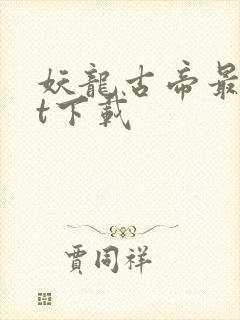 妖龍古帝最
t下載
賈同祥